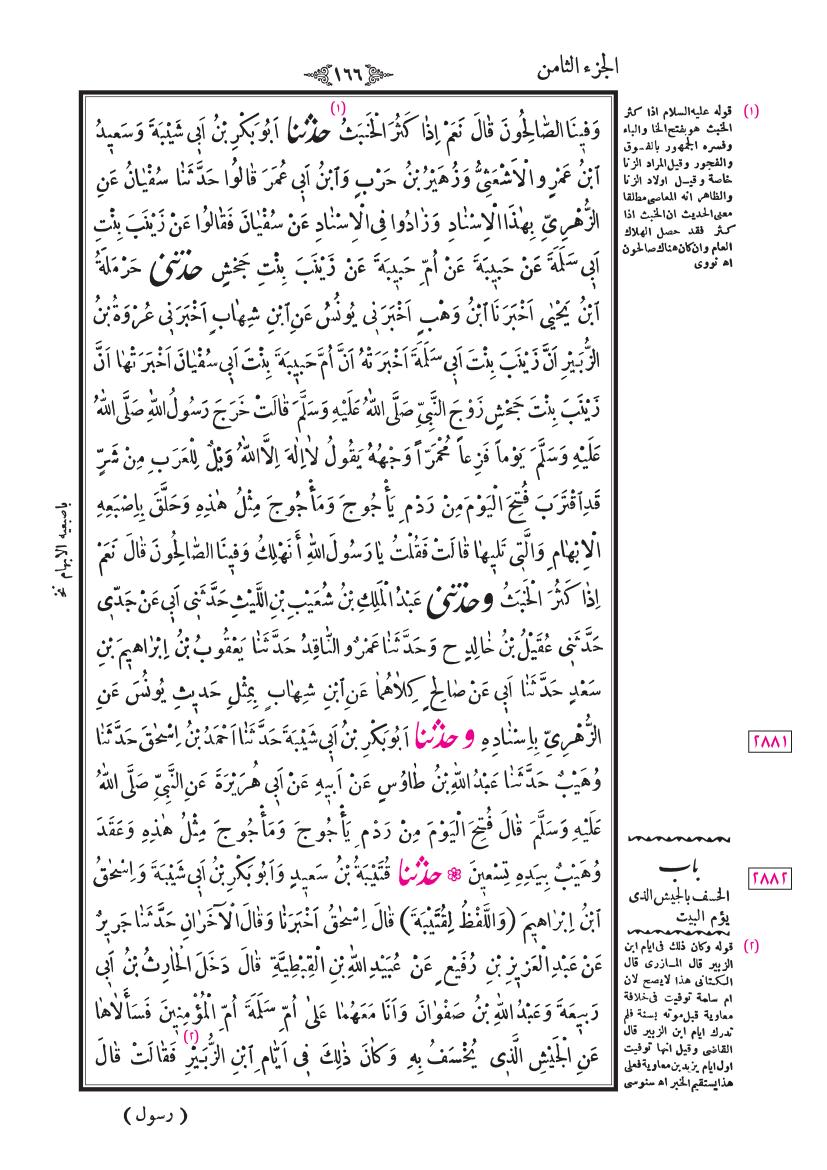 الجزء الثامن
١٦٦
وَفِينَا الصَّالِحُونَ قَالَ نَعَمْ إِذَا كَثُرَ الْخَبَثُ (١) حَدَّثَنَا اَبُوبَكْرِ بْنُ اَبِى شَيْبَةَ وَسَعِيدُ
ابْنُ عَمْرٍو الْاَشْعَثِىُّ وَزُهَيْرُ بْنُ حَرْبٍ وَابْنُ اَبِى عُمَرَ قَالُوا حَدَّثَنَا سُفْيَانُ عَنِ
الزُّهْرِىِّ بِهٰذَا الْاِسْنَادِ وَزَادُوا فِى الْاِسْنَادِ عَنْ سُفْيَانَ فَقَالُوا عَنْ زَيْنَبَ بِنْتِ
اَبِى سَلَمَةَ عَنْ حَبِيبَةَ عَنْ اُمِّ حَبِيبَةَ عَنْ زَيْنَبَ بِنْتِ جَحْشٍ حَدَّثَنِى حَرْمَلَةُ
ابْنُ يَحْيٰى اَخْبَرَنَا ابْنُ وَهْبٍ اَخْبَرَنِى يُونُسُ عَنِ ابْنِ شِهَابٍ اَخْبَرَنِى عُرْوَةُ بْنُ
الزُّبَيْرِ اَنَّ زَيْنَبَ بِنْتَ اَبِى سَلَمَةَ اَخْبَرَتْهُ اَنَّ اُمَّ حَبِيبَةَ بِنْتَ اَبِى سُفْيَانَ اَخْبَرَتْهَا اَنَّ
زَيْنَبَ بِنْتَ جَحْشٍ زَوْجَ النَّبِىِّ صَلَّى اللّٰهُ عَلَيْهِ وَسَلَّمَ قَالَتْ خَرَجَ رَسُولُ اللّٰهِ صَلَّى اللّٰهُ
عَلَيْهِ وَسَلَّمَ يَوْماً فَزِعاً مُحْمَرّاً وَجْهُهُ يَقُولُ لَا اِلٰهَ اِلَّا اللّٰهُ وَيْلٌ لِلْعَرَبِ مِنْ شَرٍّ
قَدِ اقْتَرَبَ فُتِحَ الْيَوْمَ مِنْ رَدْمِ يَأْجُوجَ وَمَأْجُوجَ مِثْلُ هٰذِهِ وَحَلَّقَ بِاِصْبَعِهِ
الْاِبْهَامِ وَالَّتِى تَلِيهَا قَالَتْ فَقُلْتُ يَا رَسُولَ اللّٰهِ أَنَهْلِكُ وَفِينَا الصَّالِحُونَ قَالَ نَعَمْ
اِذَا كَثُرَ الْخَبَثُ وَحَدَّثَنِى عَبْدُ الْمَلِكِ بْنُ شُعَيْبِ بْنِ اللَّيْثِ حَدَّثَنِى اَبِى عَنْ جَدِّى
حَدَّثَنِى عُقَيْلُ بْنُ خَالِدٍ ح وَحَدَّثَنَا عَمْرٌو النَّاقِدُ حَدَّثَنَا يَعْقُوبُ بْنُ اِبْرَاهِيمَ بْنِ
سَعْدٍ حَدَّثَنَا اَبِى عَنْ صَالِحٍ كِلَاهُمَا عَنِ ابْنِ شِهَابٍ بِمِثْلِ حَدِيثِ يُونُسَ عَنِ
الزُّهْرِىِّ بِاِسْنَادِهِ وَحَدَّثَنَا اَبُوبَكْرِ بْنُ اَبِى شَيْبَةَ حَدَّثَنَا اَحْمَدُ بْنُ اِسْحٰقَ حَدَّثَنَا
وُهَيْبٌ حَدَّثَنَا عَبْدُ اللّٰهِ بْنُ طَاوُسٍ عَنْ اَبِيهِ عَنْ اَبِى هُرَيْرَةَ عَنِ النَّبِىِّ صَلَّى اللّٰهُ
عَلَيْهِ وَسَلَّمَ قَالَ فُتِحَ الْيَوْمَ مِنْ رَدْمِ يَأْجُوجَ وَمَأْجُوجَ مِثْلُ هٰذِهِ وَعَقَدَ
وُهَيْبٌ بِيَدِهِ تِسْعِينَ ۞ حَدَّثَنَا قُتَيْبَةُ بْنُ سَعِيدٍ وَاَبُوبَكْرِ بْنُ اَبِى شَيْبَةَ وَاِسْحٰقُ
ابْنُ اِبْرَاهِيمَ (وَاللَّفْظُ لِقُتَيْبَةَ) قَالَ اِسْحٰقُ اَخْبَرَنَا وَقَالَ الْآخَرَانِ حَدَّثَنَا جَرِيرٌ
عَنْ عَبْدِ الْعَزِيزِ بْنِ رُفَيْعٍ عَنْ عُبَيْدِ اللّٰهِ بْنِ الْقِبْطِيَّةِ قَالَ دَخَلَ الْحَارِثُ بْنُ اَبِى
رَبِيعَةَ وَعَبْدُ اللّٰهِ بْنُ صَفْوَانَ وَاَنَا مَعَهُمَا عَلٰى اُمِّ سَلَمَةَ اُمِّ الْمُؤْمِنِينَ فَسَأَلَاهَا
عَنِ الْجَيْشِ الَّذِى يُخْسَفُ بِهِ وَكَانَ ذٰلِكَ فِى اَيَّامِ ابْنِ الزُّبَيْرِ (٢) فَقَالَتْ قَالَ
( رسول )
(١) قوله عليه السلام اذا كثر
الخبث هو بفتح الخا والباء
وفسره الجمهور بالفسوق
والفجور وقيل المراد الزنا
خاصة وقيل اولاد الزنا
والظاهر انه المعاصى مطلقا
معنى الحديث ان الخبث اذا
كثر فقد حصل الهلاك
العام وان كان هناك صالحون
اه نووى
٢٨٨١
باب
الخسف بالجيش الذى
يؤم البيت
٢٨٨٢
(٢) قوله وكان ذلك فى ايام ابن
الزبير قال المازرى قال
الكتانى هذا لايصح لان
ام سلمة توفيت فى خلافة
معاوية قبل موته بسنة فلم
تدرك ايام ابن الزبير قال
القاضى وقيل انها توفيت
اول ايام يزيد بن معاوية فعلى
هذا يستقيم الخبر اه سنوسى
باصبعيه الابهام نخ